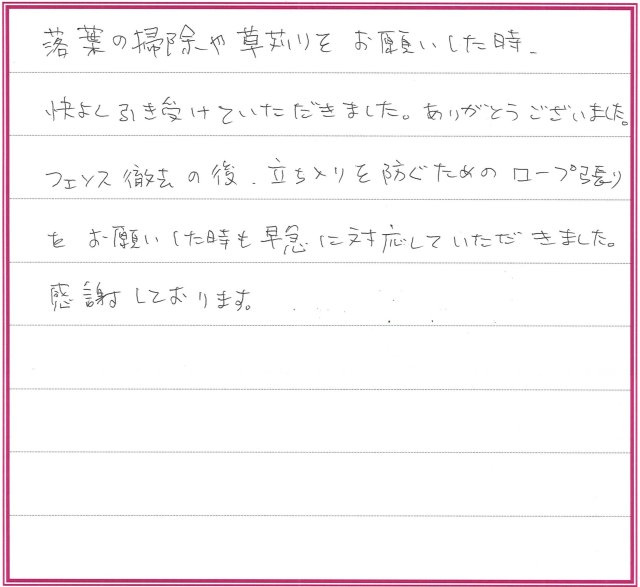 落葉の掃除や草刈りをお願いした時、
快よく引き受けていただきました。ありがとうございました。
フェンス徹去の後、立ち入りを防ぐためのロープ張り
をお願いした時も早急に対応していただきました。
感謝しております。